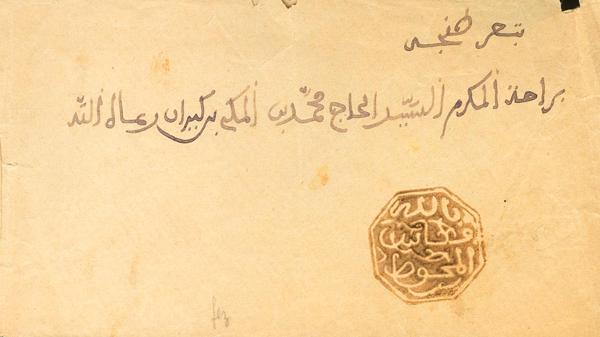 بثغر طنجة
براحة المكرم السيد الحاج محمد بن المكي بن كيران رعاه الله
بالله
فاس
fez